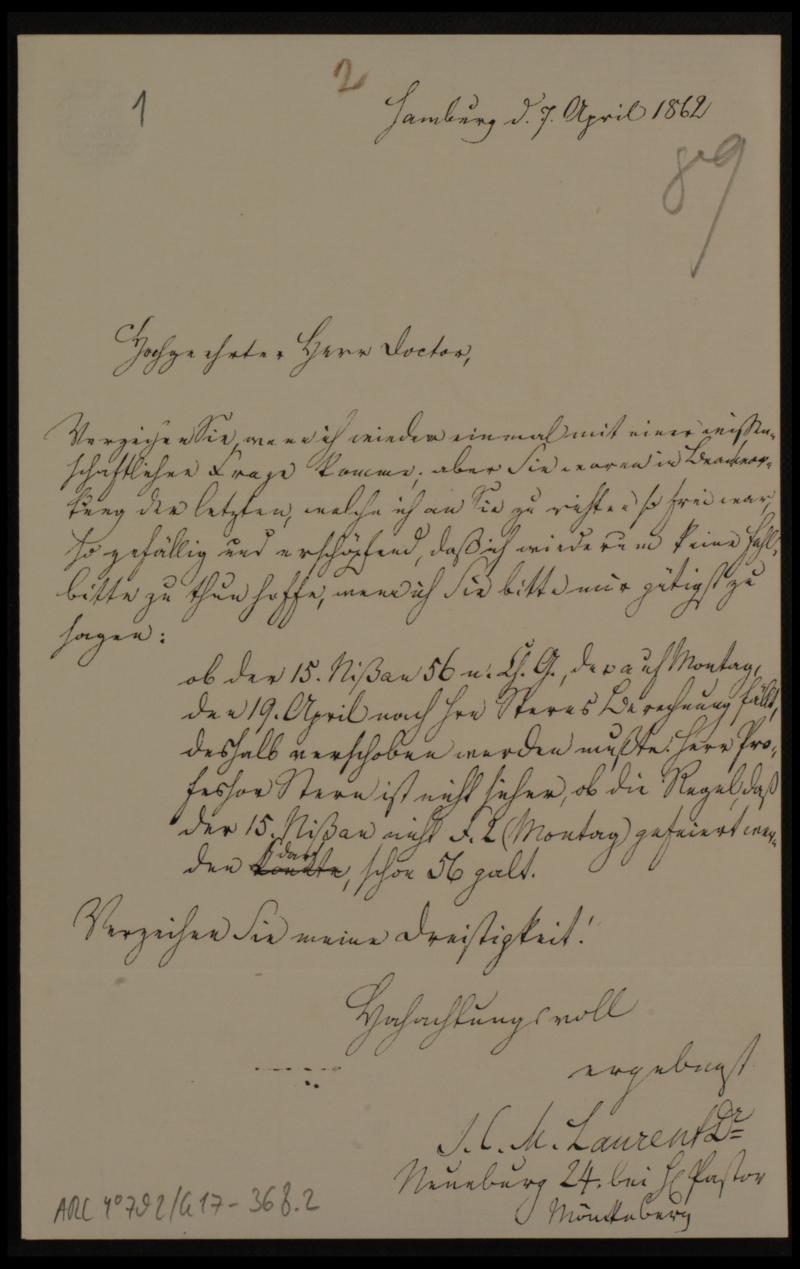 1
2
Hamburg d. 7. April 1862
Hochgeehrter Herr Doctor,
Verzeihen Sie, wenn ich wieder einmal mit einer wissen-
schaftlichen Frage komme; aber Sie waren in Beantwor-
tung der letzten, welche ich an Sie zu richten so frei war,
so gefällig und erschöpfend, daß ich wiederum keine Fehl-
bitte zu thun hoffe, wenn ich Sie bitte mir gütigst zu
sagen:
ob der 15. Nißan 56 n. Ch. G., der auf Montag,
den 19. April nach Hrn Sterns Berechnung fällt,
deshalb verschoben werden mußte. Herr Pro-
fessor Stern ist nicht sicher, ob die Regel, daß
der 15. Nißan nicht F. 2 (Montag) gefeiert wer-
den konnte darf, schon 56 galt.
Verzeihen Sie meine Dreistigkeit!
Hochachtungsvoll
ergebenst
J. C. M. Laurent Dr
Neueburg 24. bei H Pastor
Mönckeberg
ARC 4° 792/G17-368.2